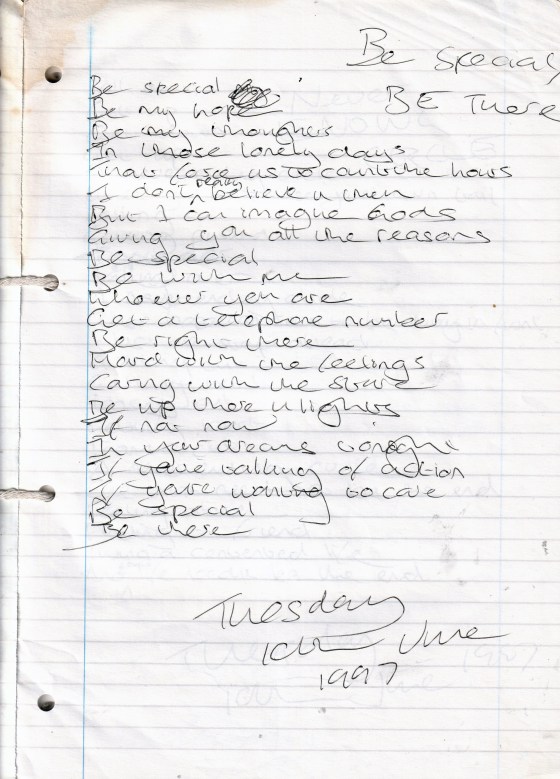 Be special
BE There
Be special
Be my hope
Be my thoughts
In those lonely days
That force us to count the hours
I don't really believe in them
But I can imagine Gods
Giving you all the reasons
Be special
Be with me
Whoever you are
Get a telephone number
Be right there
Hard with the feelings
Caring with the stare
Be up there in lights
If not now
In your dreams tonight
If you're talking of action
If you're wanting to care
Be special
Be there
Tuesday
10th June
1997